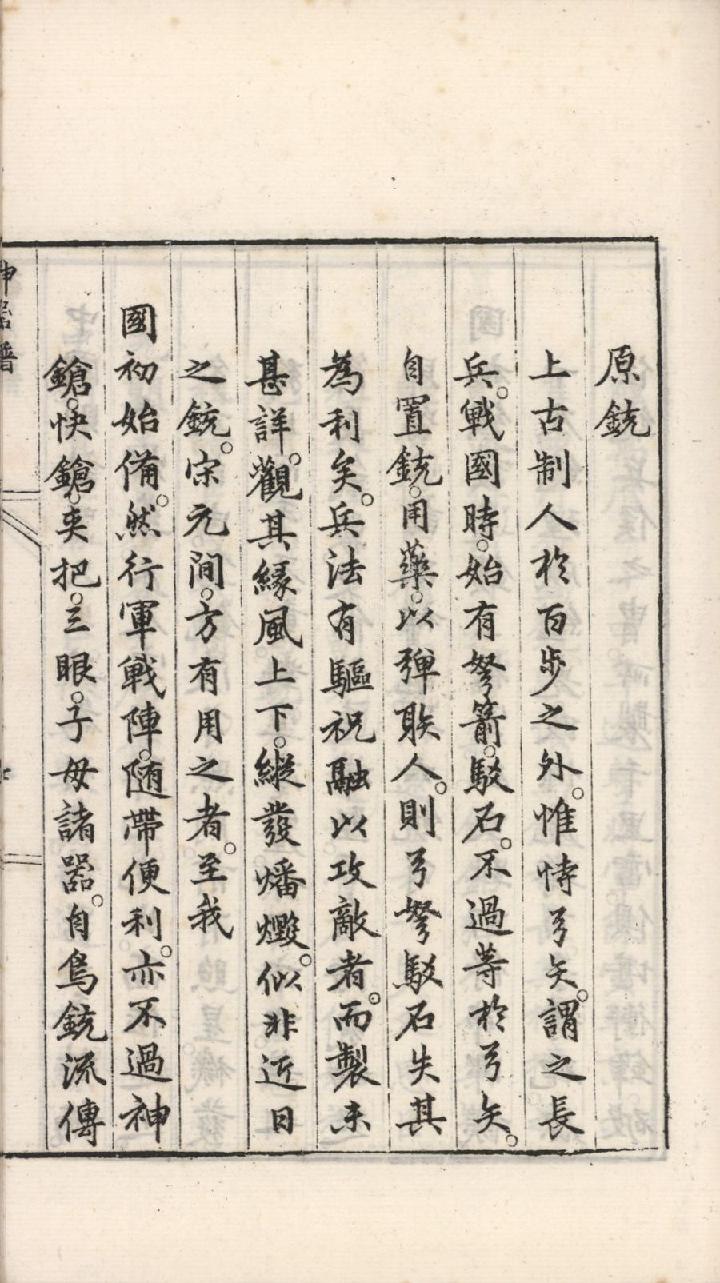 原銃
上古制人於百步之外。惟恃弓矢。謂之長
兵。戰國時。始有弩箭。駁石。不過等於弓矢。
自置銃。用藥。以彈聀人。則弓弩駁石失其
為利矣。兵法有驅祝融以攻敵者。而製未
甚詳。觀其緣風上下。縱發燔燬。似非近日
之銃。宋元間。方有用之者。至我
國初始備。然行軍戰陣。随帶便利。亦不過神
鎗。快鎗。夾把。三眼。子母諸器。自鳥銃流傳
神器譜